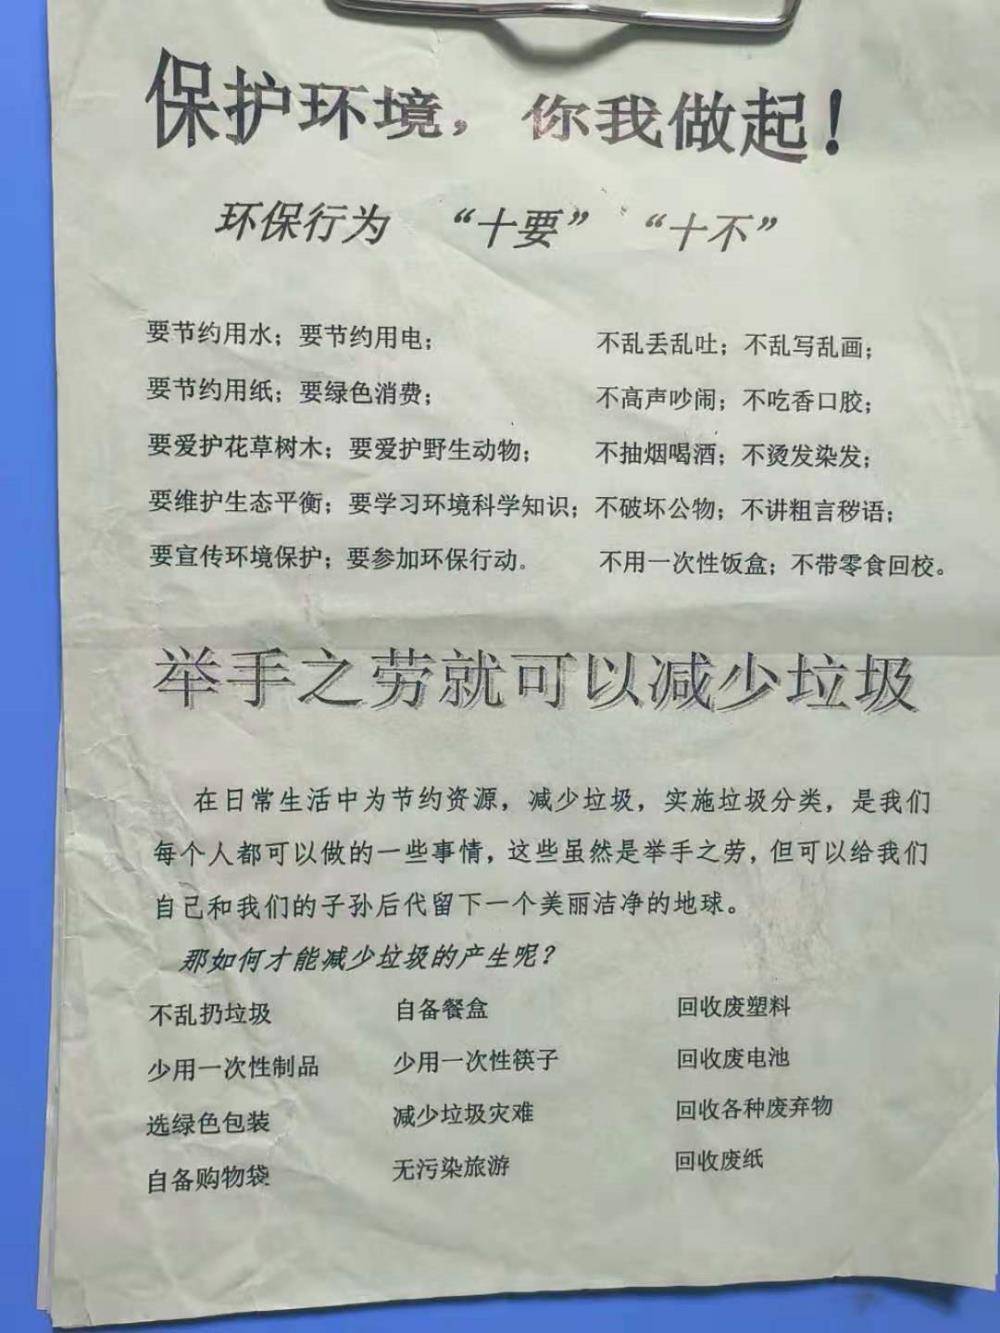 保护环境，你我做起！
环保行为 “十要” “十不”
要节约用水；要节约用电； 不乱丢乱吐；不乱写乱画；
要节约用纸；要绿色消费； 不高声吵闹；不吃香口胶；
要爱护花草树木；要爱护野生动物； 不抽烟喝酒；不烫发染发；
要维护生态平衡；要学习环境科学知识；不破坏公物；不讲粗言秽语；
要宣传环境保护；要参加环保行动。 不用一次性饭盒；不带零食回校。
举手之劳就可以减少垃圾
在日常生活中为节约资源，减少垃圾，实施垃圾分类，是我们
每个人都可以做的一些事情，这些虽然是举手之劳，但可以给我们
自己和我们的子孙后代留下一个美丽洁净的地球。
那如何才能减少垃圾的产生呢？
不乱扔垃圾 自备餐盒 回收废塑料
少用一次性制品 少用一次性筷子 回收废电池
选绿色包装 减少垃圾灾难 回收各种废弃物
自备购物袋 无污染旅游 回收废纸